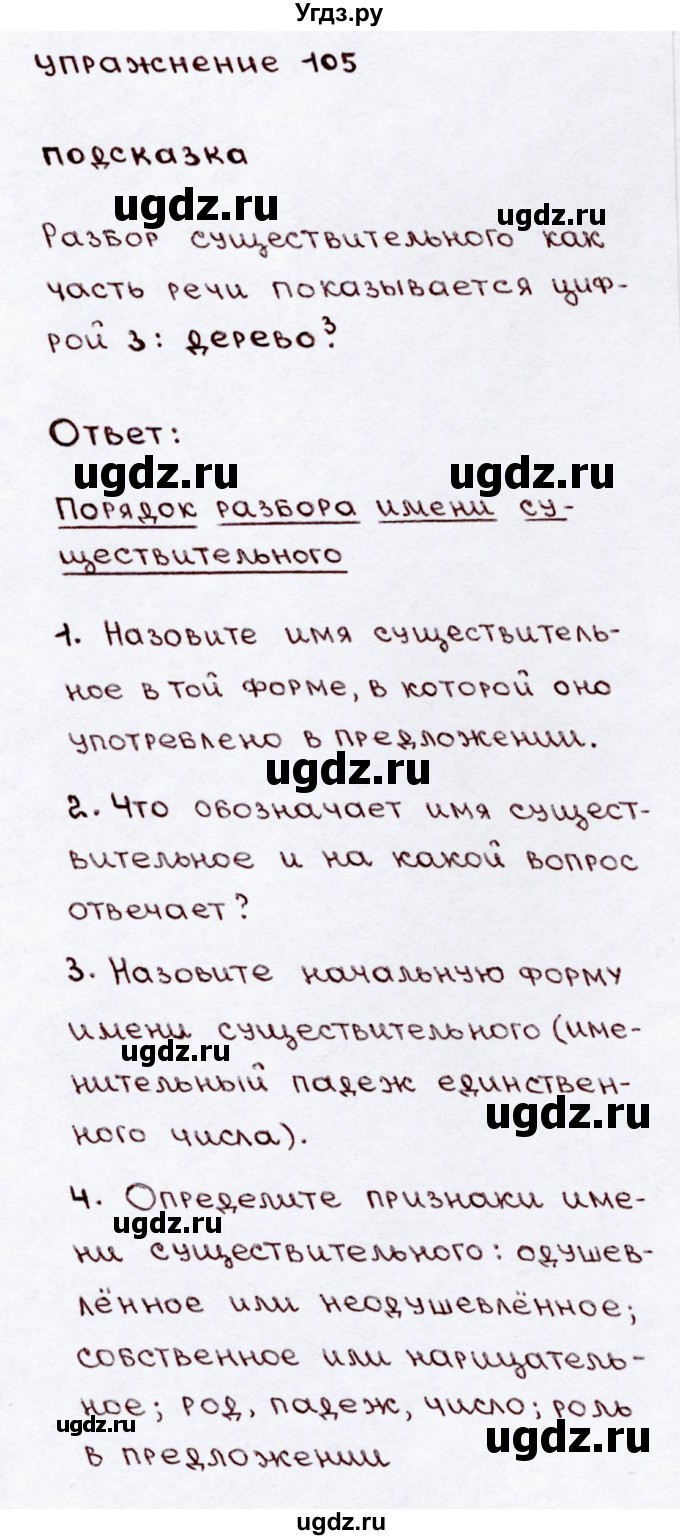 Угдз.ру
упражнение 105
подсказка
ugdz.ru
ugdz.ru
Разбор существительного как
часть речи показывается циф-
рой 3: дерево³.
Ответ:
ugdz.ru
ugdz.ru
Порядок разбора имени су-
ществительного
1. Назовите имя существитель-
ное в той форме, в которой оно
употреблено в предложении.
ugdz.ru
2. Что обозначает имя существ-
вительное и на какой вопрос
отвечает?
3. Назовите начальную форму
имени существительного (име-
ugdz.ru
нительный падеж единствен-
ugdz.ru
ного числа).
4. Определите признаки име-
ugdz.ru
ни существительного: одушев-
лённое или неодушевлённое;
собственное или нарицатель-
ное; род, падеж, число; роль
ugdz.ru
ugdz.ru
в предложении
ugdz.ru